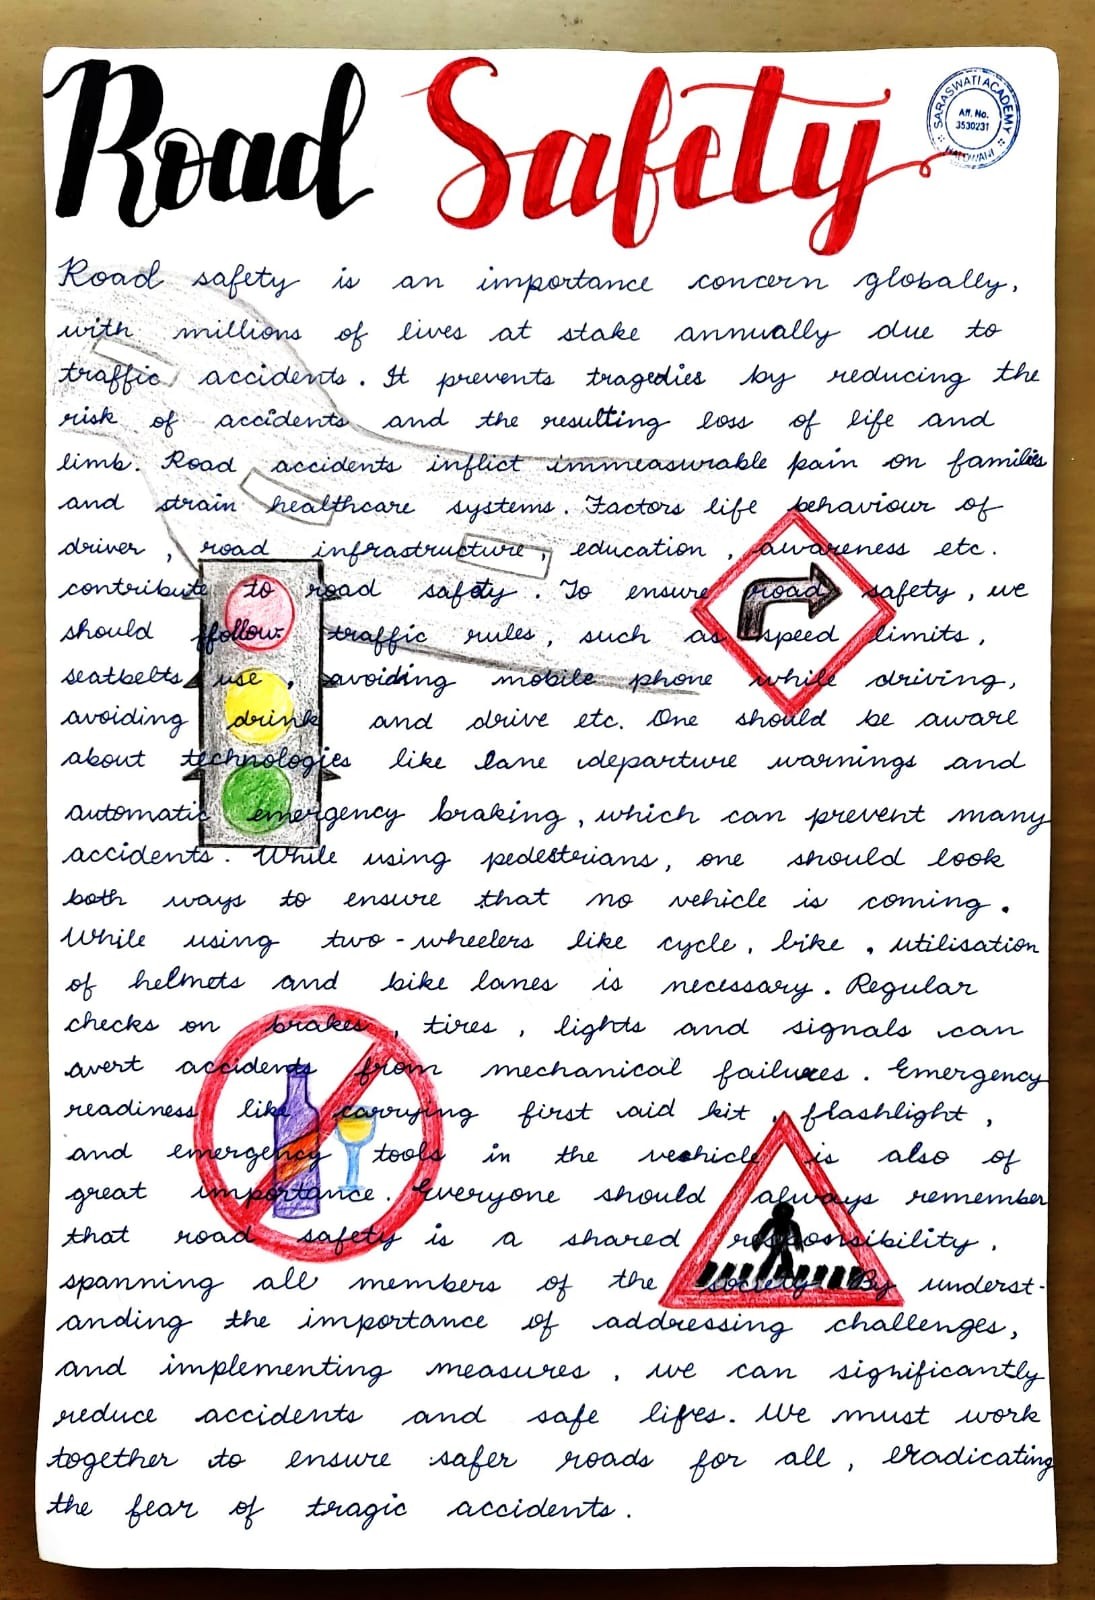 Road Safety
SARASWATI ACADEMY
Aff. No.
3530231
HALDWANI
Road safety is an importance concern globally,
with millions of lives at stake annually due to
traffic accidents. It prevents tragedies by reducing the
risk of accidents and the resulting loss of life and
limb. Road accidents inflict immeasurable pain on families
and strain healthcare systems. Factors life behaviour of
driver, road infrastructure, education, awareness etc.
contribute to road safety. To ensure road safety, we
should follow traffic rules, such as speed limits,
seatbelts use, avoiding mobile phone while driving,
avoiding drink and drive etc. One should be aware
about technologies like lane departure warnings and
automatic emergency braking, which can prevent many
accidents. While using pedestrians, one should look
both ways to ensure that no vehicle is coming.
While using two-wheelers like cycle, bike, utilisation
of helmets and bike lanes is necessary. Regular
checks on brakes, tires, lights and signals can
avert accidents from mechanical failures. Emergency
readiness like carrying first aid kit, flashlight,
and emergency tools in the vechicle is also of
great importance. Everyone should always remember
that road safety is a shared responsibility,
spanning all members of the society. By underst-
anding the importance of addressing challenges,
and implementing measures, we can significantly
reduce accidents and safe lifes. We must work
together to ensure safer roads for all, eradicating
the fear of tragic accidents.